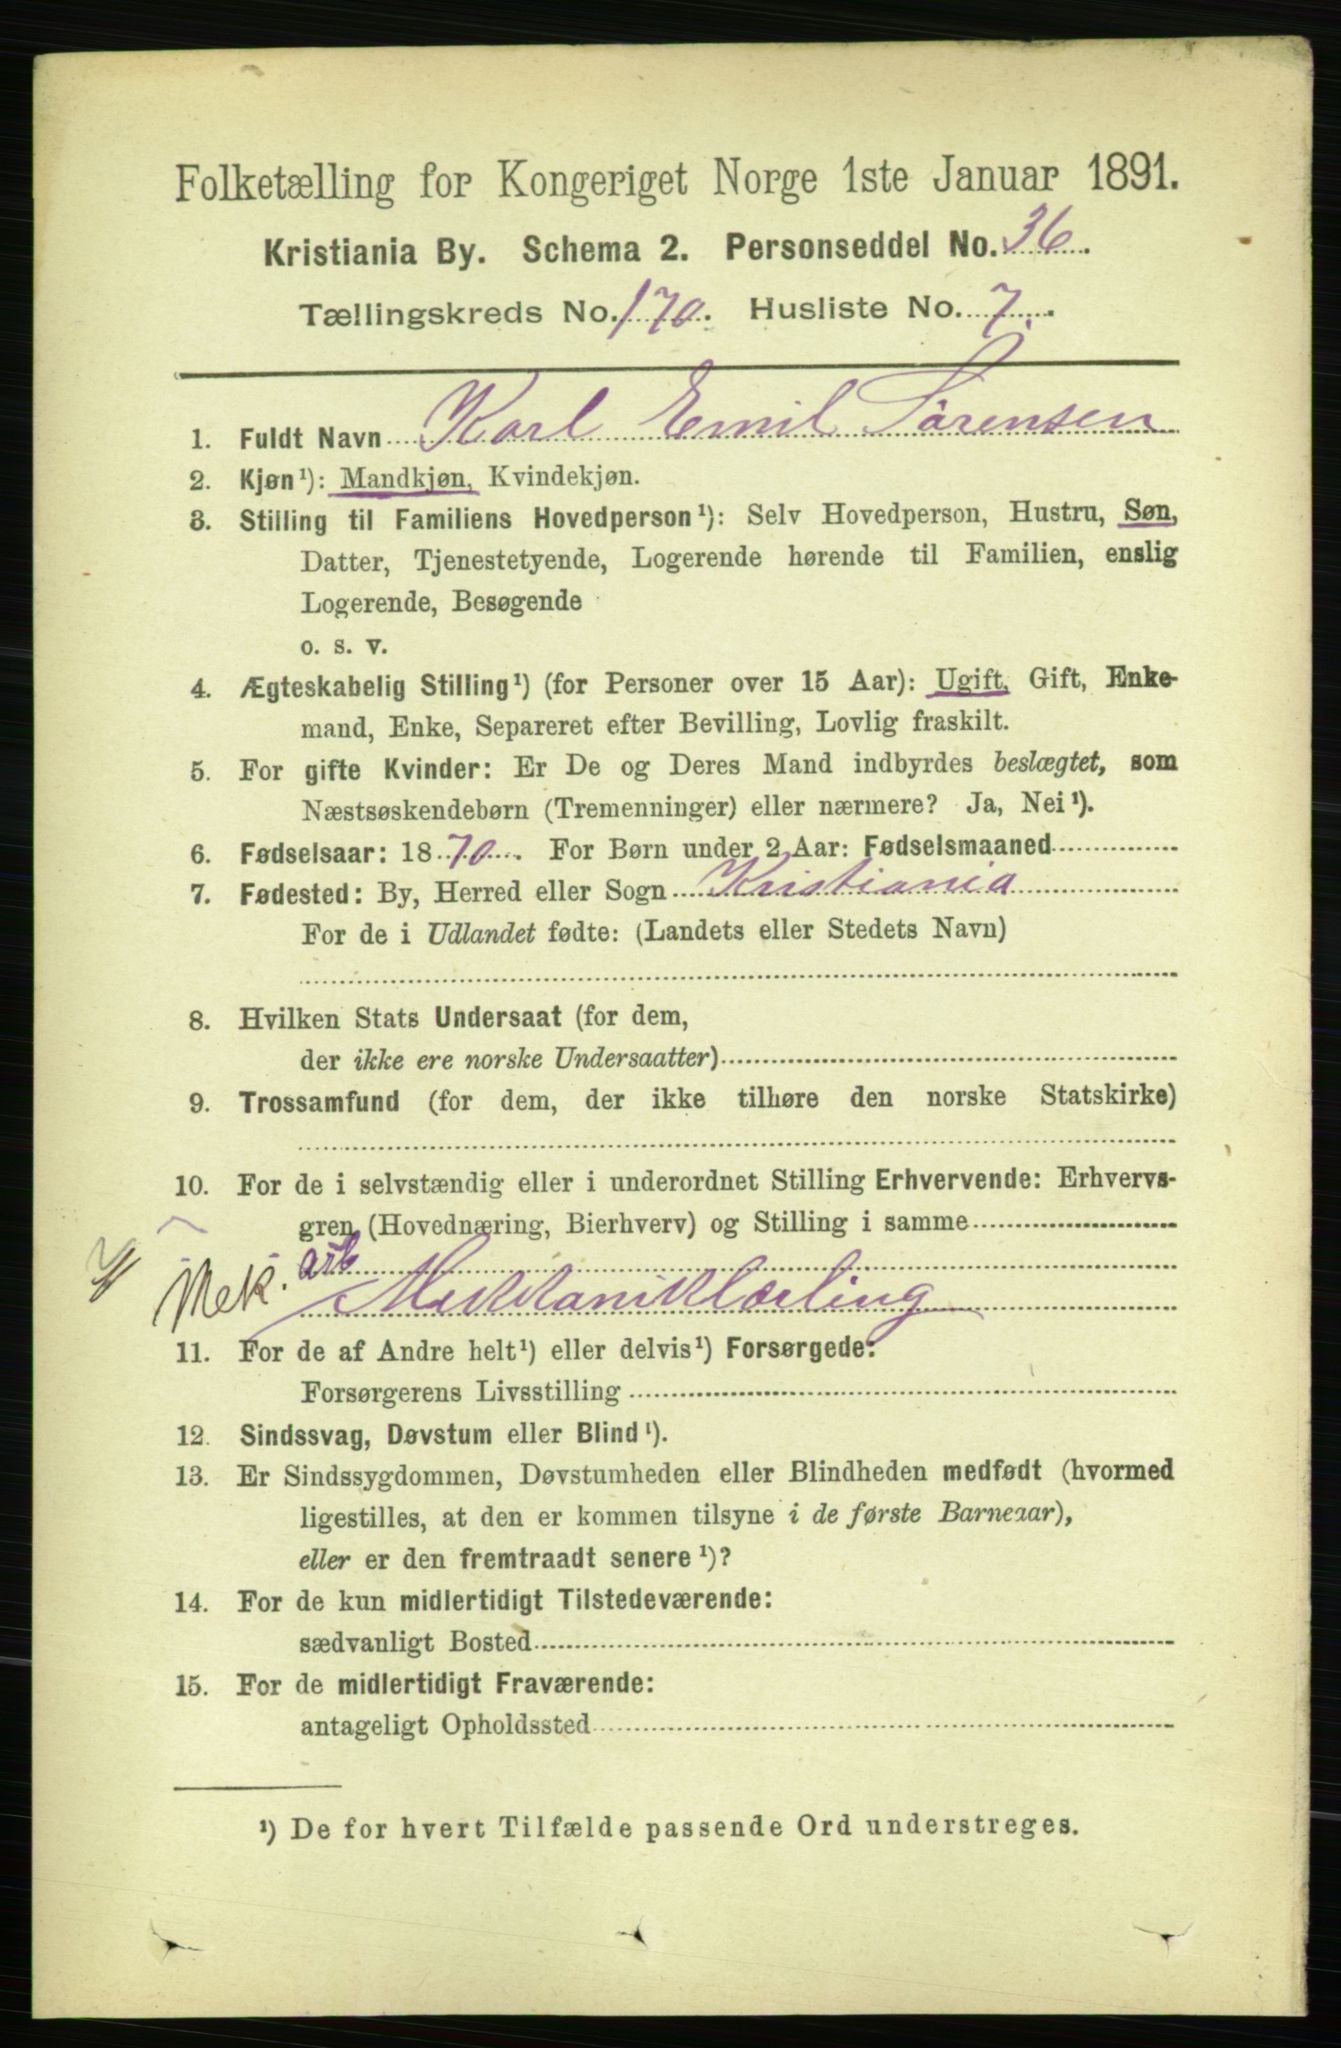 Folketælling for Kongeriget Norge 1ste Januar 1891.
Kristiania By. Schema 2. Personseddel No. 36.
Tællingskreds No. 170. Husliste No. 7.
1. Fuldt Navn Karl Emil Sørensen
2. Kjøn¹): Mandkjøn, Kvindekjøn.
3. Stilling til Familiens Hovedperson¹): Selv Hovedperson, Hustru, Søn,
Datter, Tjenestetyende, Logerende hørende til Familien, enslig
Logerende, Besøgende
o. s. v.
4. Ægteskabelig Stilling¹) (for Personer over 15 Aar): Ugift, Gift, Enke-
mand, Enke, Separeret efter Bevilling, Lovlig fraskilt.
5. For gifte Kvinder: Er De og Deres Mand indbyrdes beslægtet, som
Næstsøskendebørn (Tremenninger) eller nærmere? Ja, Nei¹).
6. Fødselsaar: 1870. For Børn under 2 Aar: Fødselsmaaned
7. Fødested: By, Herred eller Sogn Kristiania
For de i Udlandet fødte: (Landets eller Stedets Navn)
8. Hvilken Stats Undersaat (for dem,
der ikke ere norske Undersaatter)
9. Trossamfund (for dem, der ikke tilhøre den norske Statskirke)
10. For de i selvstændig eller i underordnet Stilling Erhvervende: Erhvervs-
gren (Hovednæring, Bierhverv) og Stilling i samme
Mek. arb
Mekkaniklærling
11. For de af Andre helt¹) eller delvis¹) Forsørgede:
Forsørgerens Livsstilling
12. Sindssvag, Døvstum eller Blind¹).
13. Er Sindssygdommen, Døvstumheden eller Blindheden medfødt (hvormed
ligestilles, at den er kommen tilsyne i de første Barneaar),
eller er den fremtraadt senere¹)?
14. For de kun midlertidigt Tilstedeværende:
sædvanligt Bosted
15. For de midlertidigt Fraværende:
antageligt Opholdssted
¹) De for hvert Tilfælde passende Ord understreges.